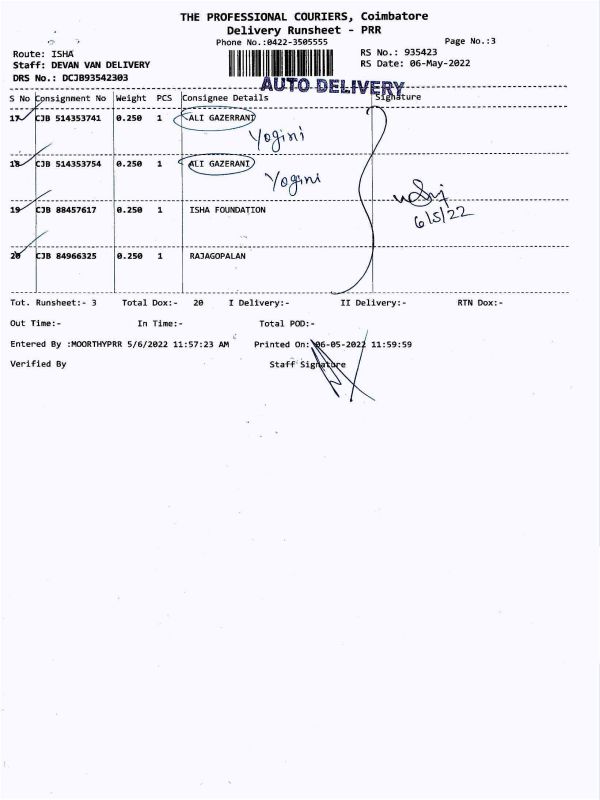 THE PROFESSIONAL COURIERS, Coimbatore
Delivery Runsheet - PRR
Phone No.:0422-3505555
Page No.:3
Route: ISHA
RS No.: 935423
Staff: DEVAN VAN DELIVERY
RS Date: 06-May-2022
DRS No.: DCJB93542303
AUTO DELIVERY
S No Consignment No Weight PCS Consignee Details Signature
17 CJB 514353741 0.250 1 ALI GAZERRANI
Yogini
18 CJB 514353754 0.250 1 ALI GAZERANI
Yogini
19 CJB 88457617 0.250 1 ISHA FOUNDATION
6/5/22
20 CJB 84966325 0.250 1 RAJAGOPALAN
Tot. Runsheet:- 3 Total Dox:- 20 I Delivery:- II Delivery:- RTN Dox:-
Out Time:- In Time:- Total POD:-
Entered By :MOORTHYPRR 5/6/2022 11:57:23 AM Printed On: 06-05-2022 11:59:59
Verified By Staff Signature